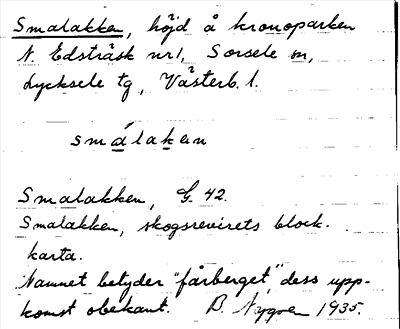 Smalakken, höjd å kronoparken
N. Edsträsk nr1, Sorsele sn,
Lycksele tg, Västerb. l.
smálaken
Smalakken, G. 42.
Smalakken, skogsrevirets block-
karta.
Namnet betyder "fårberget", dess upp-
komst obekant. B. Nygren 1935.